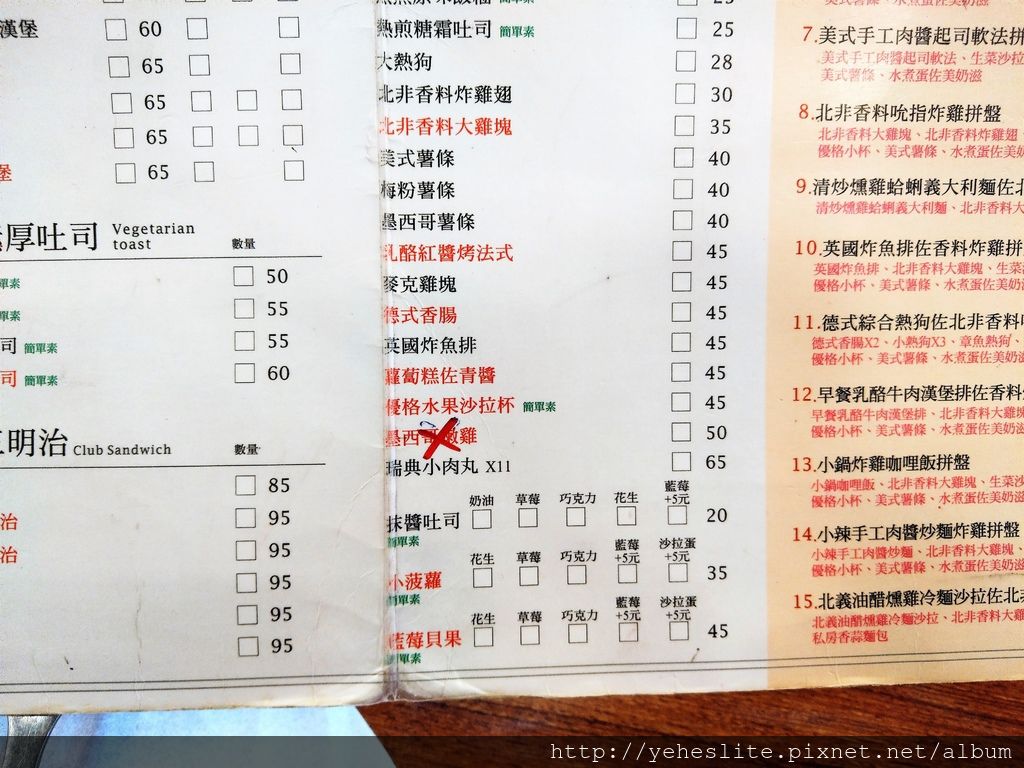 漢堡 60
65
65
65
堡 65
厚吐司 Vegetarian toast 數量
單素 50
單素 55
司 簡單素 55
司 簡單素 60
明治 Club Sandwich 數量
85
治 95
治 95
95
95
95
25
熱煎糖霜吐司 簡單素 25
大熱狗 28
北非香料炸雞翅 30
北非香料大雞塊 35
美式薯條 40
梅粉薯條 40
墨西哥薯條 40
乳酪紅醬烤法式 45
麥克雞塊 45
德式香腸 45
英國炸魚排 45
蘿蔔糕佐青醬 45
優格水果沙拉杯 簡單素 45
墨西哥嫩雞 50
瑞典小肉丸 X11 65
奶油 草莓 巧克力 花生 藍莓+5元
抹醬吐司 20
簡單素
花生 草莓 巧克力 藍莓+5元 沙拉蛋+5元
小菠蘿 35
簡單素
花生 草莓 巧克力 藍莓+5元 沙拉蛋+5元
藍莓貝果 45
簡單素
美式薯條、水煮蛋佐美奶滋
7.美式手工肉醬起司軟法拼
美式手工肉醬起司軟法、生菜沙拉
美式薯條、水煮蛋佐美奶滋
8.北非香料吮指炸雞拼盤
北非香料大雞塊、北非香料炸雞翅
優格小杯、美式薯條、水煮蛋佐美奶滋
9.清炒燻雞蛤蜊義大利麵佐北
清炒燻雞蛤蜊義大利麵、北非香料大
10.英國炸魚排佐香料炸雞拼
英國炸魚排、北非香料大雞塊、生菜
優格小杯、美式薯條、水煮蛋佐美奶
11.德式綜合熱狗佐北非香料
德式香腸X2、小熱狗X3、章魚熱狗、
優格小杯、美式薯條、水煮蛋佐美奶
12.早餐乳酪牛肉漢堡排佐香料
早餐乳酪牛肉漢堡排、北非香料大雞
優格小杯、美式薯條、水煮蛋佐美奶滋
13.小鍋炸雞咖哩飯拼盤
小鍋咖哩飯、北非香料大雞塊、生菜沙
優格小杯、美式薯條、水煮蛋佐美奶滋
14.小辣手工肉醬炒麵炸雞拼盤
小辣手工肉醬炒麵、北非香料大雞塊、
優格小杯、美式薯條、水煮蛋佐美奶滋
15.北義油醋燻雞冷麵沙拉佐北
北義油醋燻雞冷麵沙拉、北非香料大雞
私房香蒜麵包
http://yeheslite.pixnet.net/album